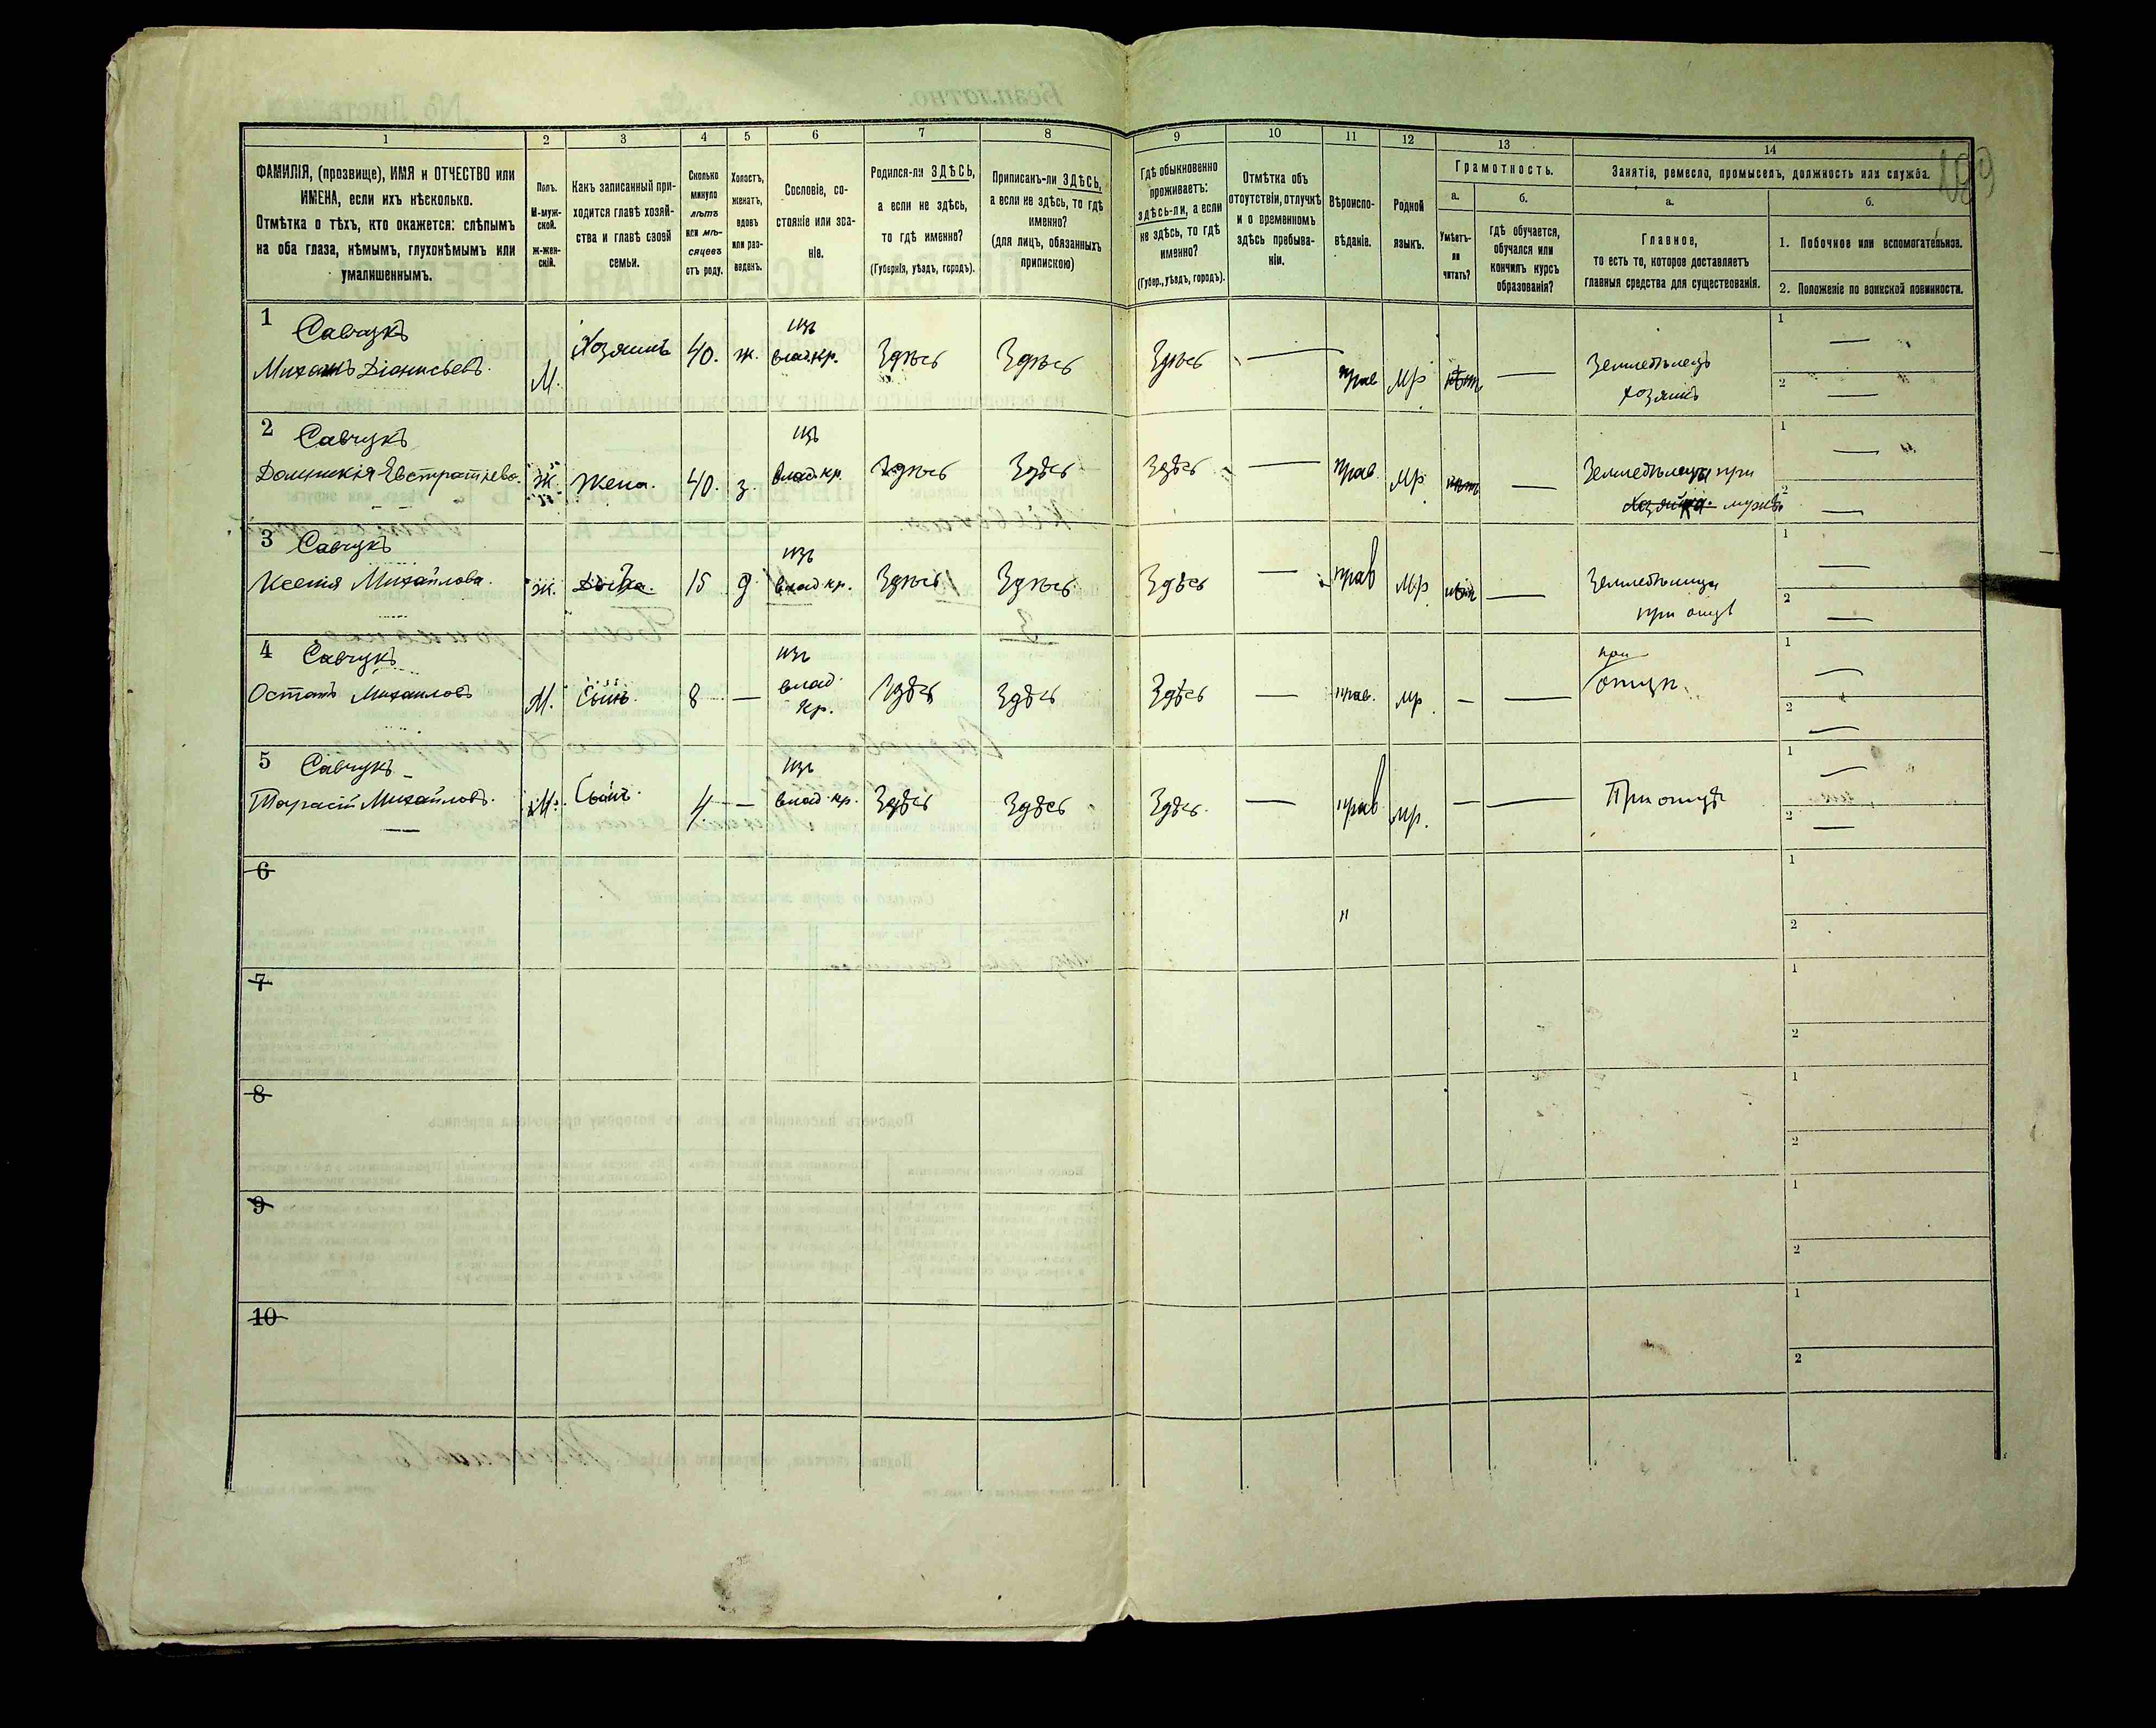 189
1 2 3 4 5 6 7 8 9 10 11 12 13 14
ФАМИЛІЯ, (прозвище), ИМЯ и ОТЧЕСТВО или
ИМЕНА, если ихъ нѣсколько.
Отмѣтка о тѣхъ, кто окажется: слѣпымъ
на оба глаза, нѣмымъ, глухонѣмымъ или
умалишеннымъ.
Полъ.
М-муж-
ской.
ж-жен-
скій.
Какъ записанный при-
ходится главѣ хозяй-
ства и главѣ своей
семьи.
Сколько
минуло
лѣтъ
или мѣ-
сяцевъ
отъ роду.
Холостъ,
женатъ,
вдовъ
или раз-
веденъ.
Сословіе, со-
стояніе или зва-
ніе.
Родился-ли ЗДѢСЬ,
а если не здѣсь,
то гдѣ именно?
(Губернія, уѣздъ, городъ).
Приписанъ-ли ЗДѢСЬ,
а если не здѣсь, то гдѣ
именно?
(для лицъ, обязанныхъ
припискою)
Гдѣ обыкновенно
проживаетъ:
здѣсь-ли, а если
не здѣсь, то гдѣ
именно?
(Губер., уѣздъ, городъ).
Отмѣтка объ
отсутствіи, отлучкѣ
и о временномъ
здѣсь пребыва-
ніи.
Вѣроиспо-
вѣданіе.
Родной
языкъ.
Грамотность.
а.
Умѣетъ-
ли
читать?
б.
гдѣ обучается,
обучался или
кончилъ курсъ
образованія?
Занятіе, ремесло, промыселъ, должность или служба.
а.
Главное,
то есть то, которое доставляетъ
главныя средства для существованія.
б.
1. Побочное или вспомогательное.
2. Положеніе по воинской повинности.
1 Савчукъ изъ 1 —
Михаилъ Діонисьевъ. М. Хозяинъ 40. ж. влад.кр. Здѣсь Здѣсь Здѣсь — прав мр нѣтъ — Земледѣлецъ
хозяинъ 2 —
2 Савчукъ изъ 1 —
Домникія Евстратіева. Ж. Жена. 40. з. влад.кр. Здѣсь Здѣсь Здѣсь — прав. мр. нѣтъ — при
мужѣ 2 —
3 Савчукъ изъ 1 —
Ксенія Михайлова. ж. Дочка. 15 д влад кр. Здѣсь Здѣсь Здѣсь — прав мр нѣтъ — Земледѣлица
при отцѣ 2 —
4 Савчукъ изъ при 1 —
Остапъ Михаиловъ М. Сынъ. 8 — влад. Здѣсь Здѣсь Здѣсь — прав. мр. — — отцѣ
кр. 2 —
5 Савчукъ изъ 1 —
Михайловъ. М. Сынъ. 4. — влад. кр. Здѣсь Здѣсь Здѣсь. — прав мр. — — При отцѣ
2 —
6 1
" 2
7 1
2
8 1
2
9 1
2
10 1
2